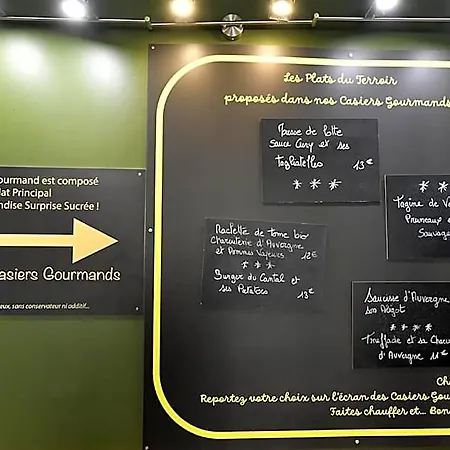 ourmand est composé
lat Principal
ndise Surprise Sucrée !
asiers Gourmands
eux, sans conservateur ni additif...
Les Plats du Terroir
proposés dans nos Casiers Gourmands
sauce Cury et ses
Tagliatelles 13€
Tagine de Ve
Pruneaux
Sauvage
Raclette de tome bio
Charcuterie d'Auvergne
et Pommes Vapeurs 12€
Burger du Cantal et
ses Potatoes 13€
Saucisse d'Auvergne
son Aligot
Truffade et sa Charcu
d'Auvergne 11€
Ch
Reportez votre choix sur l'écran des Casiers Gou
Faites chauffer et... Bon